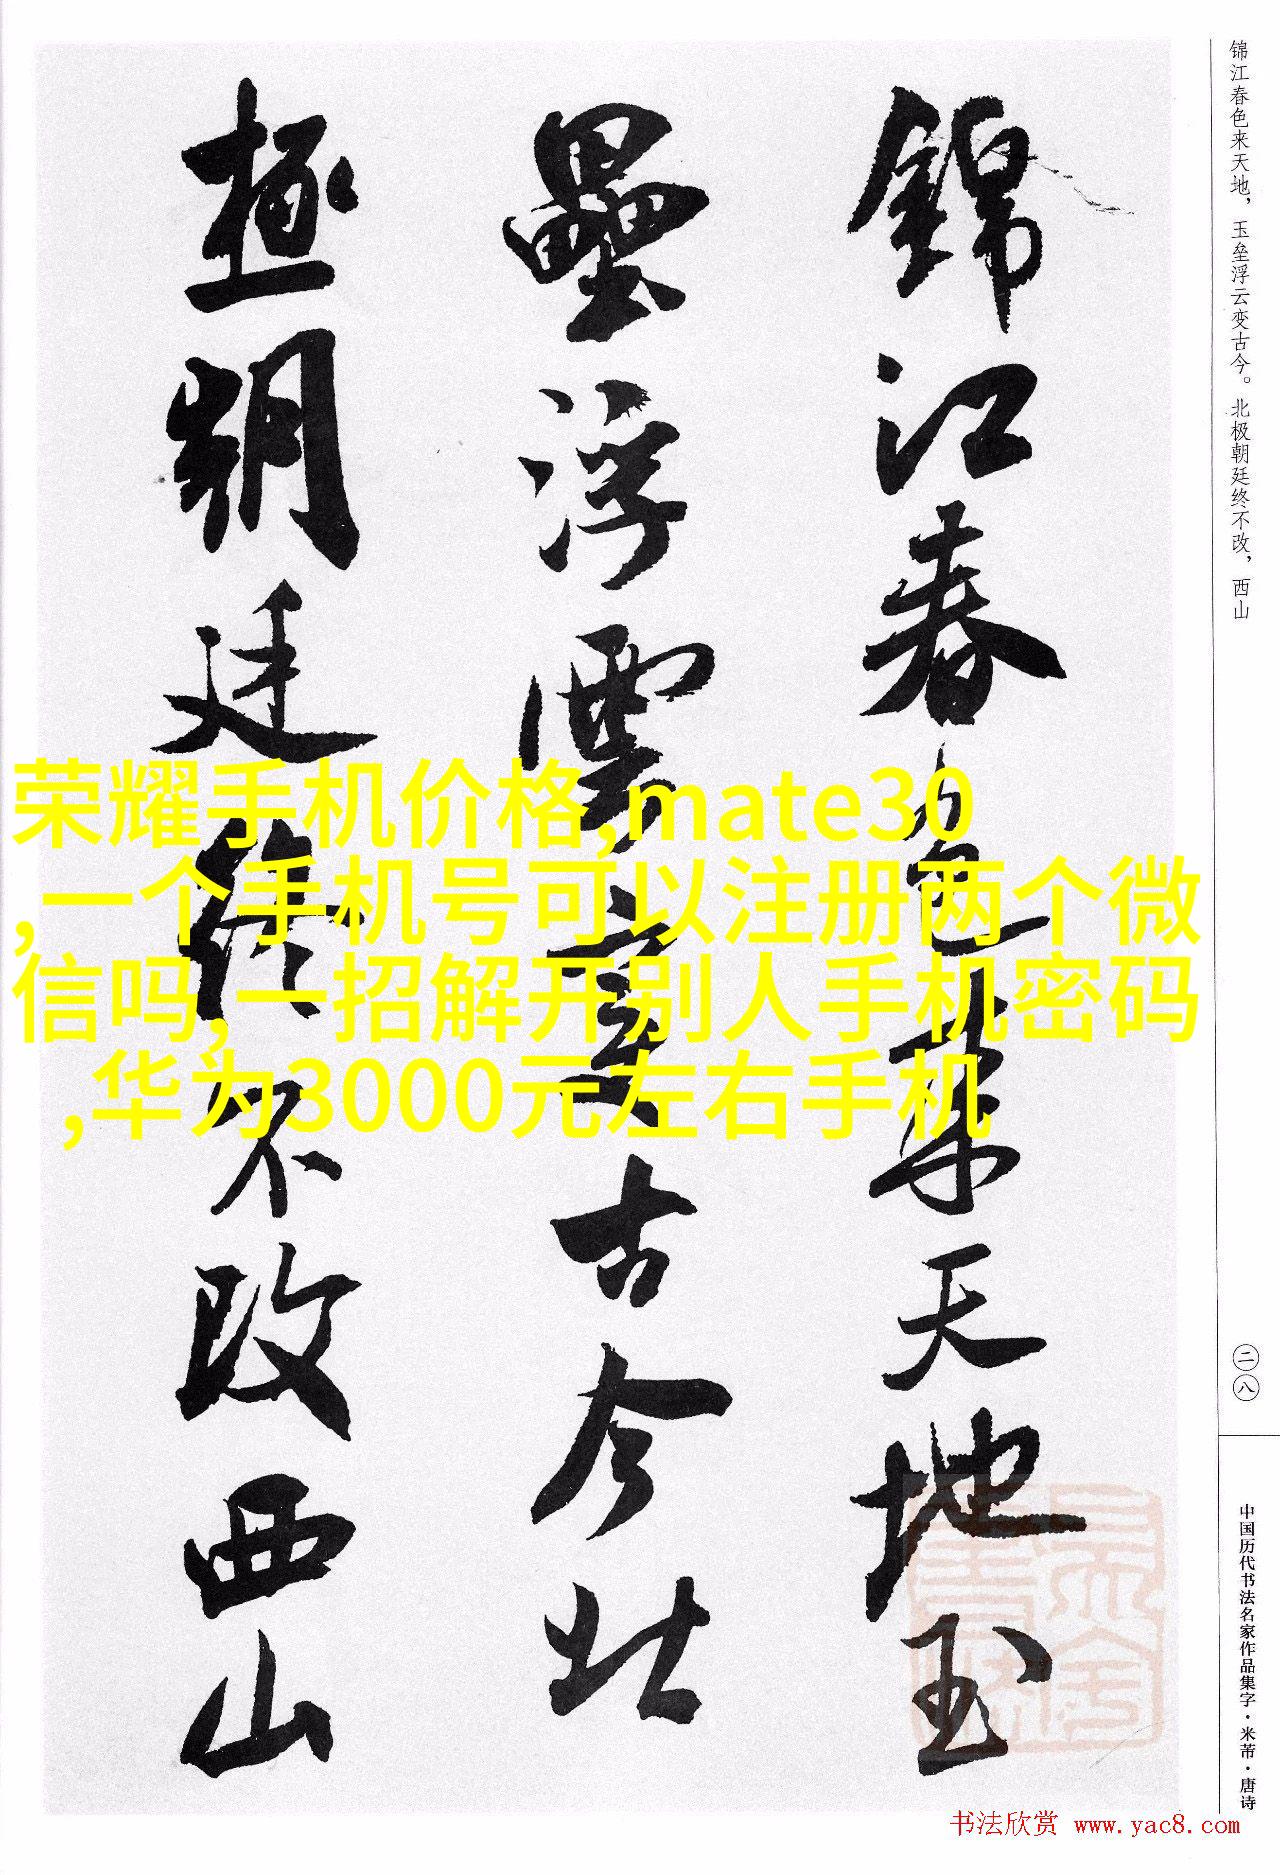 锦江春色来天地，玉垒浮云变古今。北极朝廷终不改，西山
錦江春色来天地玉
壘浮雲变古今北
極朝廷终不改西山
荣耀手机价格,mate30
,一个手机号可以注册两个微
信吗,一招解开别人手机密码
,华为3000元左右手机
二八
中国历代书法名家作品集字·米芾·唐诗
书法欣赏 www.yac8.com